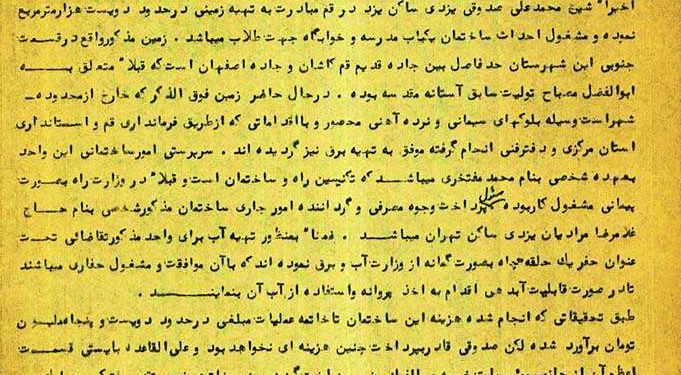 اخیراً شیخ محمدعلی صدوقی یزدی ساکن یزد در قم مبادرت به تهیه زمینی درحدود دویست هزارمترمربع
نموده و مشغول احداث ساختمان یکباب مدرسه و خوابگاه جهت طلاب میباشد . زمین مذکورواقع درقسمت
جنوبی این شهرستان حدفاصل بین جاده قدیم قم کاشان و جاده اصفهان است که قبلاً متعلق بــــه
ابوالفضل مصباح تولیت سابق آستانه مقدسه بوده . درحال حاضر زمین فوق الذکر که خارج ازمحدوده ـ
شهراست وسیله بلوکهای سیمانی و نرده آهنی محصور و بااقداماتی که ازطریق فرمانداری قم و استانداری
استان مرکزی و دفترفنی انجام گرفته موفق به تهیه برق نیز گردیده اند . سرپرستی امورساختمانی این واحد
بعهده شخصی بنام محمد مفتخری میباشد که تکنیسین راه و ساختمان است و قبلاً در وزارت راه بصورت
پیمانی مشغول کاربوده پرداخت وجوه مصرفی و گرداننده امور جاری ساختمان مذکورشخصی بنام حــاج
غلامرضا مرادیان یزدی ساکن تهران میباشــد . ضمناً بمنظور تهیه آب برای واحد مذکورتقاضائی تحت
عنوان حفریك حلقه چاه بصورت گمانه از وزارت آب و برق نموده اند که باآن موافقت و مشغول حفاری میباشند
تادر صورت قابلیت آبدهی اقدام به اخذ پروانه واستفاده ازآب آن بنماینــــد .
طبق تحقیقاتی که انجام شده هزینه این ساختمان تاخاتمه عملیات مبلغی درحدود دویست و پنجاه ملیــون
تومان برآورد شده لکن صدوقی قادربپرداخت چنین هزینه ای نخواهد بود و علی القاعده بایستی قسمــت